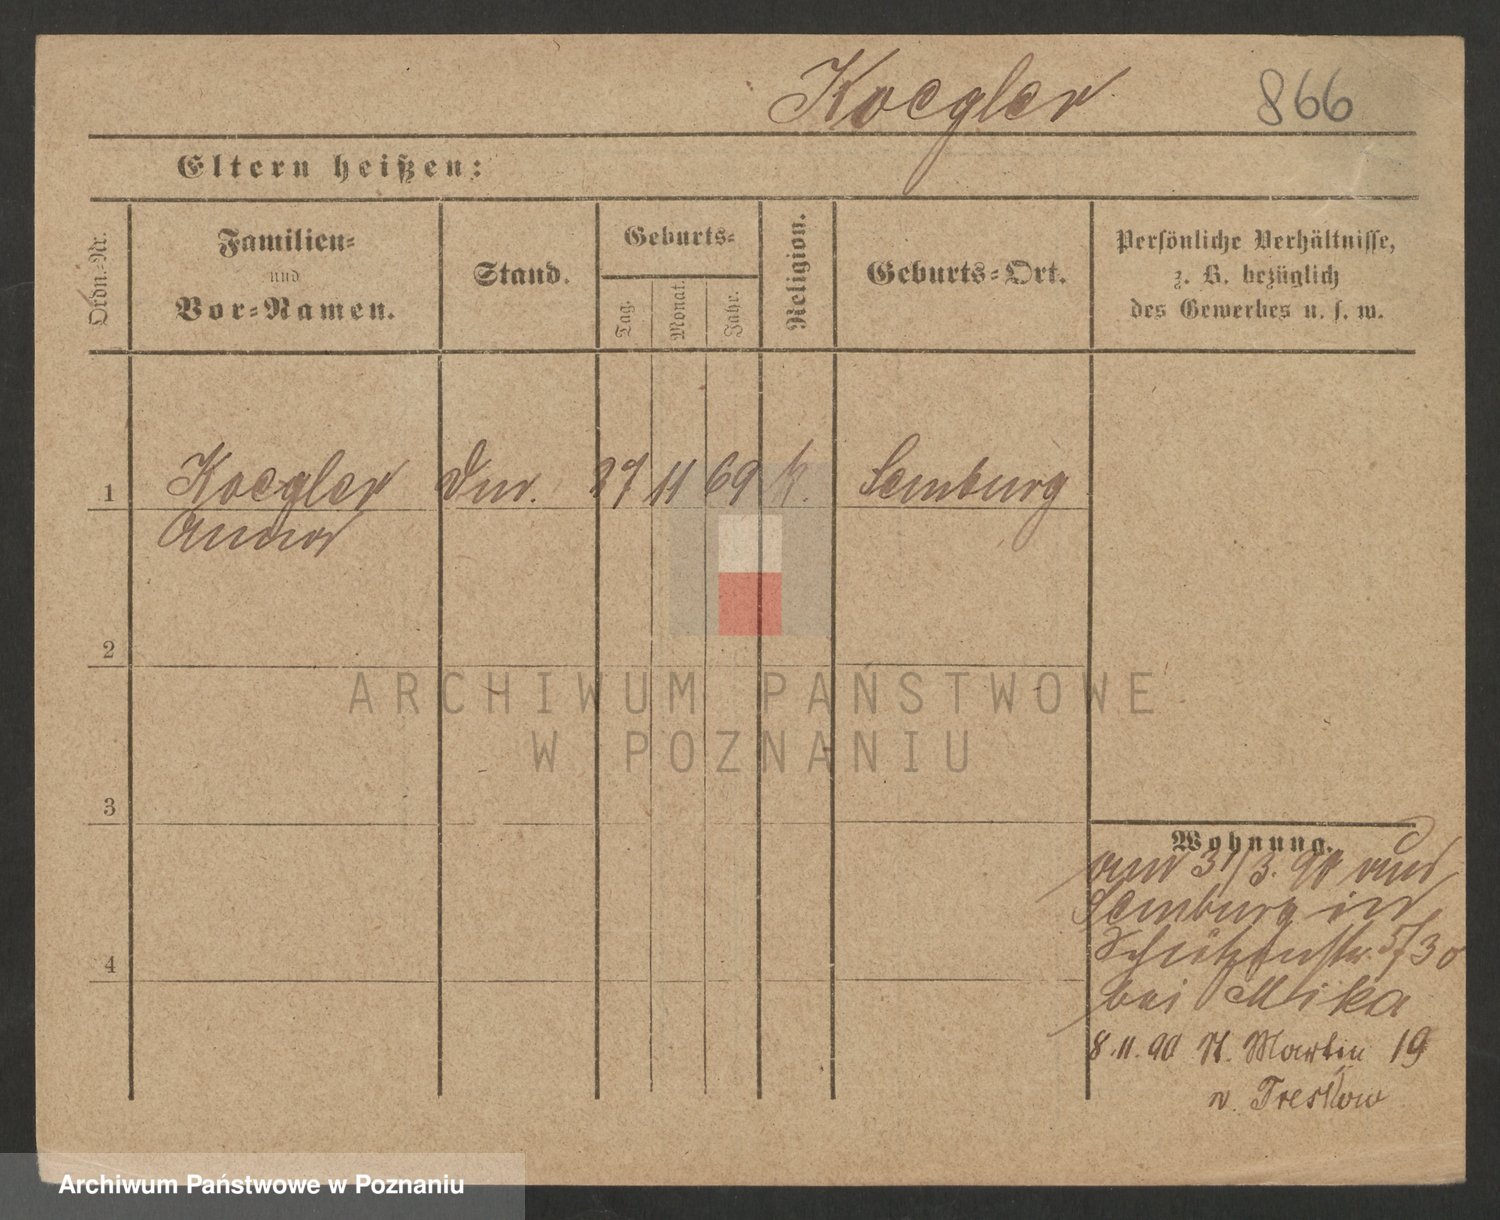 Koegler 866
Eltern heißen:
Ordn.-Nr.
Familien-
und
Vor-Namen.
Stand.
Geburts-
Tag.
Monat.
Jahr.
Religion.
Geburts-Ort.
Persönliche Verhältnisse,
z. B. bezüglich
des Gewerbes u. s. w.
1 Koegler 27 11 69 k. Samburg
Anna
2
3
4
Wohnung.
am 31/3. 90 aus
Samburg in
Schützenstr. 5/30
bei Mika
8.11.90 St. Martin 19
v. Treskow
ARCHIWUM PAŃSTWOWE
W POZNANIU
Archiwum Państwowe w Poznaniu